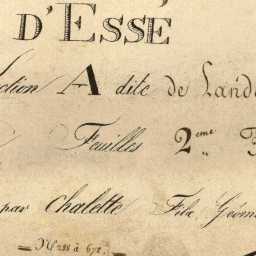 D'ESSÉ
ction A dite de Land
Feuilles 2eme
par Chalette Fils, Géom
N° 288 à 672.